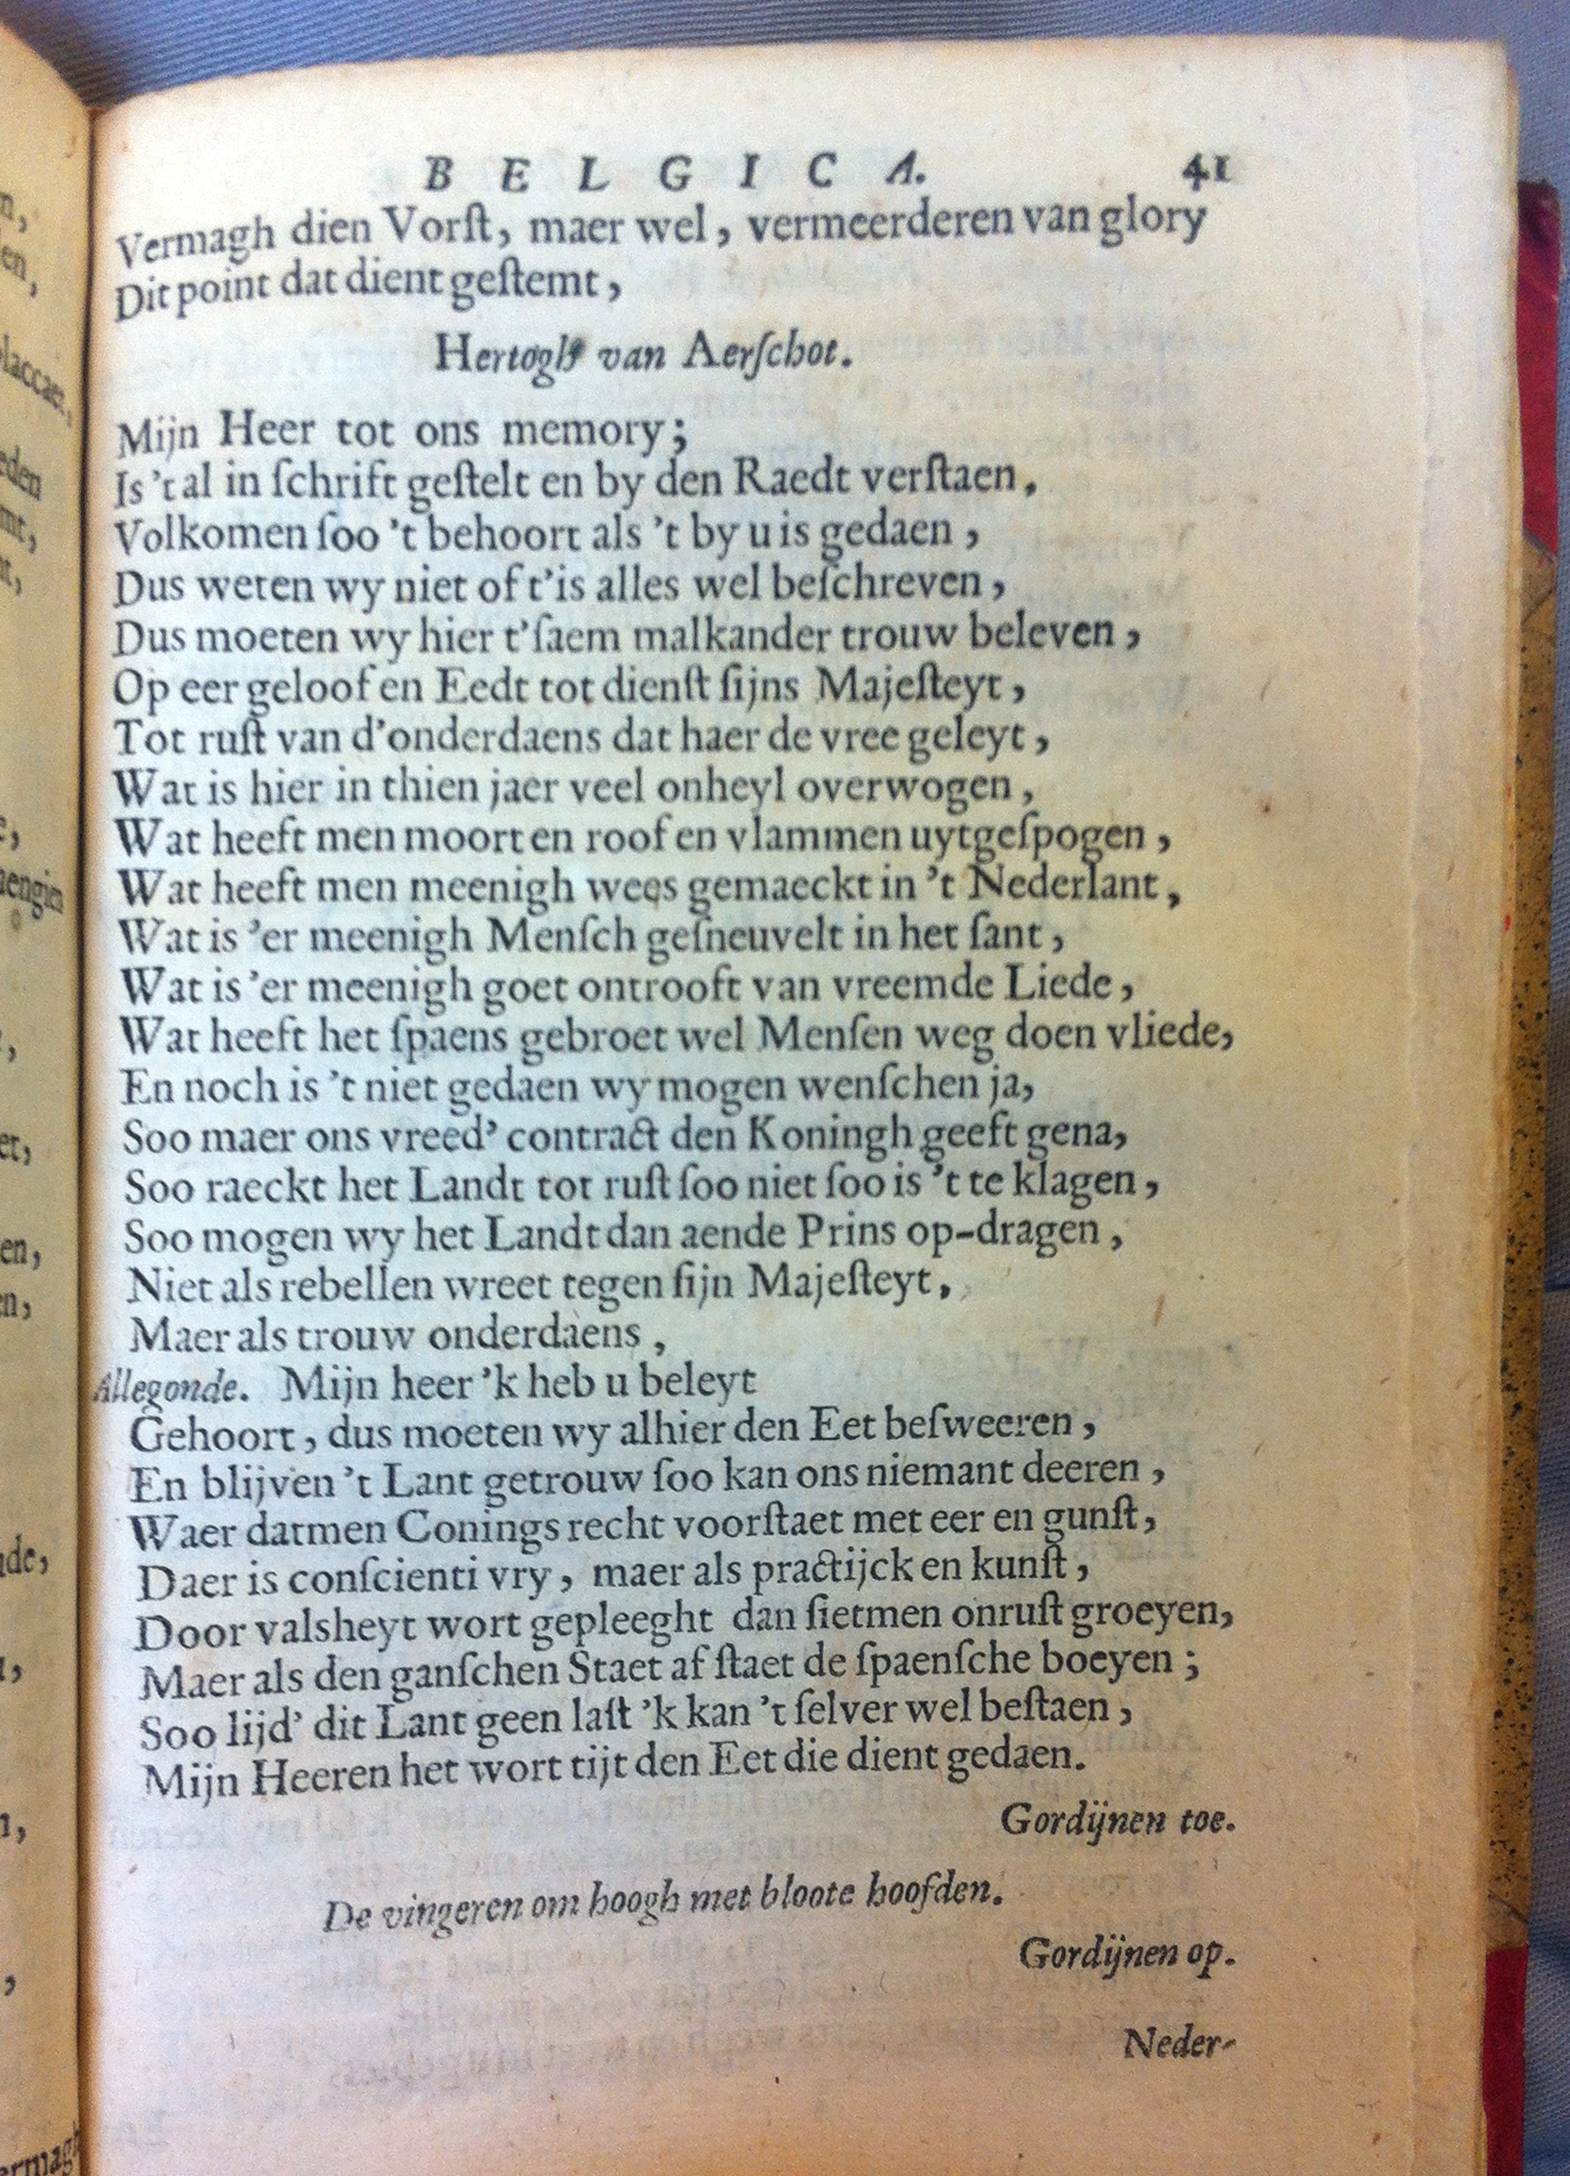 BELGICA. 41
Vermagh dien Vorſt, maer wel, vermeerderen van glory
Dit point dat dient geſtemt,
Hertogh van Aerſchot.
Mijn Heer tot ons memory;
Is 't al in ſchrift geſtelt en by den Raedt verſtaen,
Volkomen ſoo 't behoort als 't by u is gedaen,
Dus weten wy niet of t'is alles wel beſchreven,
Dus moeten wy hier t'ſaem malkander trouw beleven,
Op eer geloof en Eedt tot dienſt ſijns Majeſteyt,
Tot ruſt van d'onderdaens dat haer de vree geleyt,
Wat is hier in thien jaer veel onheyl overwogen,
Wat heeft men moort en roof en vlammen uytgeſpogen,
Wat heeft men meenigh wees gemaeckt in 't Nederlant,
Wat is 'er meenigh Menſch geſneuvelt in het ſant,
Wat is 'er meenigh goet ontrooft van vreemde Liede,
Wat heeft het ſpaens gebroet wel Menſen weg doen vliede,
En noch is 't niet gedaen wy mogen wenſchen ja,
Soo maer ons vreed' contract den Koningh geeft gena,
Soo raeckt het Landt tot ruſt ſoo niet ſoo is 't te klagen,
Soo mogen wy het Landt dan aende Prins op-dragen,
Niet als rebellen wreet tegen ſijn Majeſteyt,
Maer als trouw onderdaens,
Allegonde. Mijn heer 'k heb u beleyt
Gehoort, dus moeten wy alhier den Eet beſweeren,
En blijven 't Lant getrouw ſoo kan ons niemant deeren,
Waer datmen Conings recht voorſtaet met eer en gunſt,
Daer is conſcienti vry, maer als practijck en kunſt,
Door valsheyt wort gepleeght dan ſietmen onruſt groeyen,
Maer als den ganſchen Staet af ſtaet de ſpaenſche boeyen;
Soo lijd' dit Lant geen laſt 'k kan 't ſelver wel beſtaen,
Mijn Heeren het wort tijt den Eet die dient gedaen.
Gordijnen toe.
De vingeren om hoogh met bloote hoofden.
Gordijnen op.
Neder-